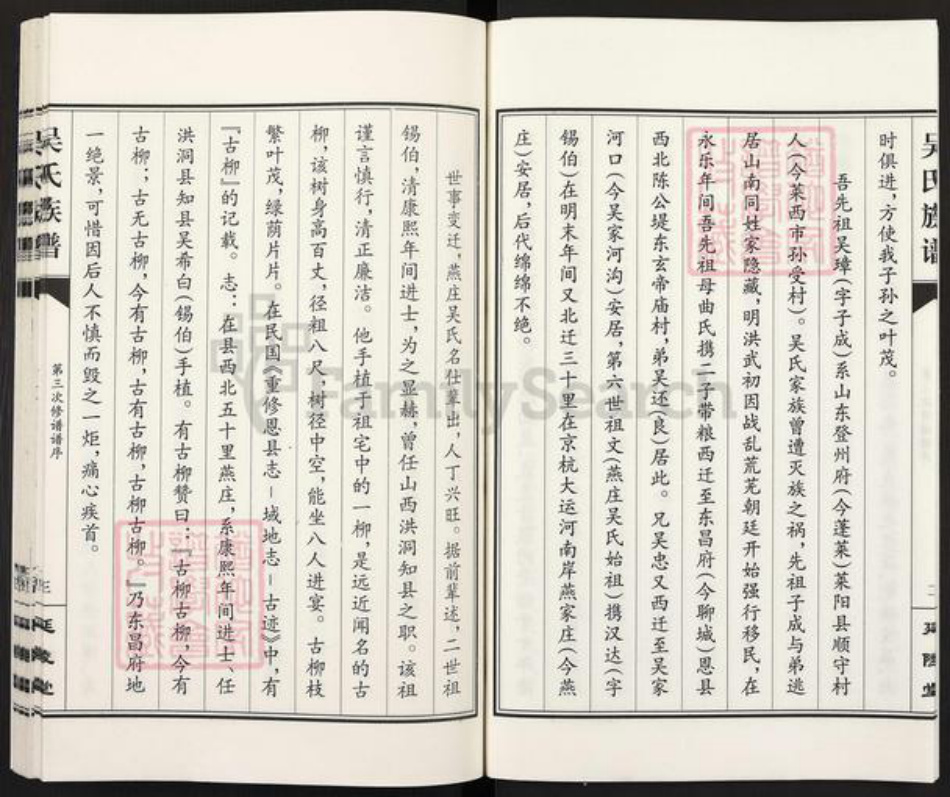 吴氏族谱
时俱进,方使我子孙之叶茂。
吾先祖吴璋(字子成)系山东登州府(今蓬莱)莱阳县顺守村
人(今莱西市孙受村)。吴氏家族曾遭灭族之祸,先祖子成与弟逃
居山南同姓家隐藏,明洪武初因战乱荒芜朝廷开始强行移民,在
永乐年间吾先祖母曲氏携二子带粮西迁至东昌府(今聊城)恩县
西北陈公堤东玄帝庙村,弟吴还(良)居此。兄吴忠又西迁至吴家
河口(今吴家河沟)安居,第六世祖文(燕庄吴氏始祖)携汉达(字
锡伯)在明末年间又北迁三十里在京杭大运河南岸燕家庄(今燕
庄)安居,后代绵绵不绝。
世事变迁,燕庄吴氏名仕辈出,人丁兴旺。据前辈述,二世祖
锡伯,清康熙年间进士,为之显赫,曾任山西洪洞知县之职。该祖
谨言慎行,清正廉洁。他手植于祖宅中的一柳,是远近闻名的古
柳,该树身高百丈,径粗八尺,树径中空,能坐八人进宴。古柳枝
繁叶茂,绿荫片片。在民国《重修恩县志–域地志–古迹》中,有
『古柳』的记载。志:在县西北五十里燕庄,系康熙年间进士、任
洪洞县知县吴希白(锡伯)手植。有古柳赞曰:『古柳古柳,今有
古柳;古无古柳,今有古柳,古有古柳,古柳古柳。』乃东昌府地
一绝景,可惜因后人不慎而毁之一炬,痛心疾首。
吴氏族谱
第三次修谱谱序
FamilySearch